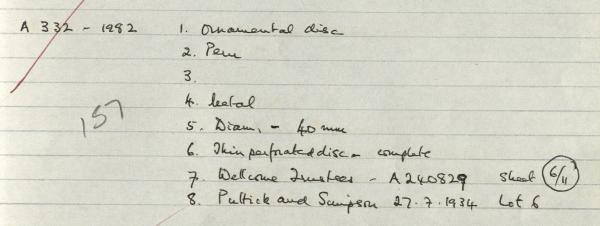 A 332 - 1982 1. Ornamental disc
2. Peru
3.
4. Metal
5. Diam. - 40 mm
6. Thin perforated disc - complete
157
7. Wellcome Trustees - A240829 Sheet 6/11
8. Puttick and Simpson 27.7.1934 Lot 6